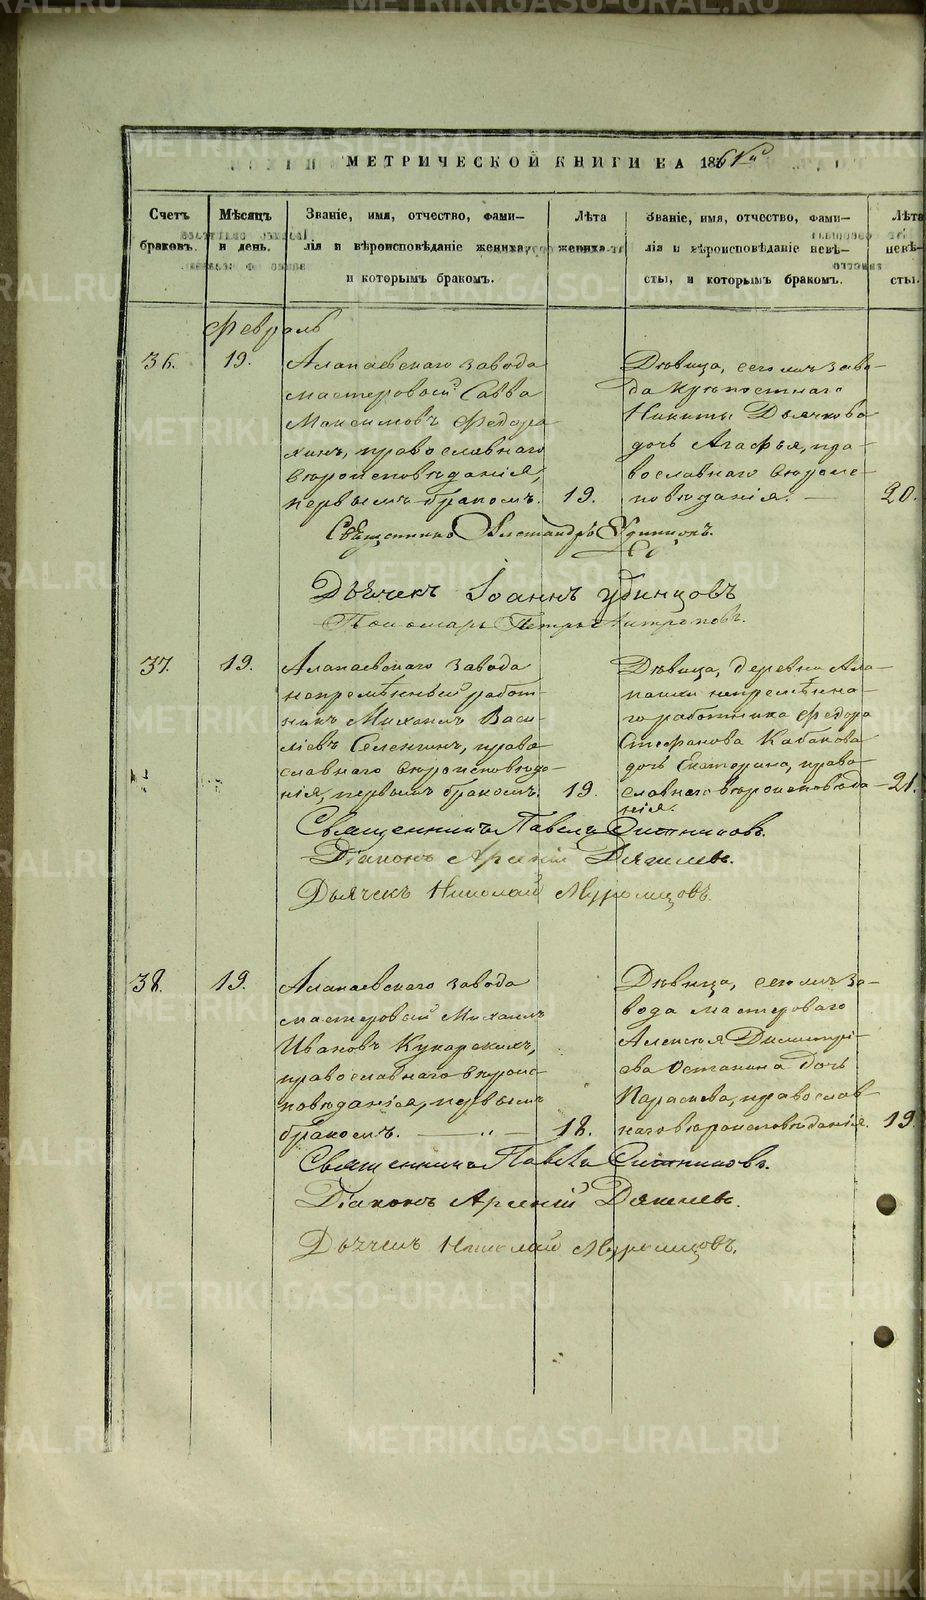 METRIKI.GASO-URAL.RU
МЕТРИЧЕСКОЙ КНИГИ НА 186
Счетъ браковъ.
Мѣсяцъ и день.
Званіе, имя, отчество, фами-
лія и вѣроисповѣданіе жениха,
и которымъ бракомъ.
Лѣта
жениха.
Званіе, имя, отчество, фами-
лія и вѣроисповѣданіе невѣ-
сты, и которымъ бракомъ.
Лѣта
невѣ-
сты.
Февраль
36. 19.
Алапаевскаго завода
мастеровой Савва
Максимовъ Федора
хинъ, православнаго
вѣроисповѣданія,
первымъ бракомъ. 19.
Дѣвица, сегожъ заво-
да крѣпостнаго
Никиты Дьячкова
дочь Агафья, пра-
вославнаго вѣроис-
повѣданія. — 20.
Священникъ Александръ Удинцовъ.
Дьячекъ Іоаннъ Удинцовъ
Пономарь Петръ
37. 19.
Алапаевскаго завода
непремѣнный работ-
никъ Михаилъ Васи-
ліевъ Селенгинъ, право
славнаго вѣроисповѣда-
нія, первымъ бракомъ. 19.
Дѣвица, деревни Ала-
пашки непремѣнна-
го работника Федора
Стефанова Кабакова
дочь Екатерина, право-
славнаго вѣроисповѣда- 21.
нія.
Священникъ Павелъ Ситниковъ.
Діаконъ Арсеній Дягилевъ.
Дьячекъ Николай Муромцовъ.
38. 19.
Алапаевскаго завода
мастеровый Михаилъ
Ивановъ Кукарскихъ,
православнаго вѣроис-
повѣданія, первымъ
бракомъ. — " — 18.
Дѣвица, сегожъ за-
вода мастероваго
Алексѣя Димитрі-
ева Останина дочь
Параскева, православ
наго вѣроисповѣданія. 19.
Священникъ Павелъ Ситниковъ.
Діаконъ Арсеній Дягилевъ.
Дьячекъ Николай Муромцовъ.